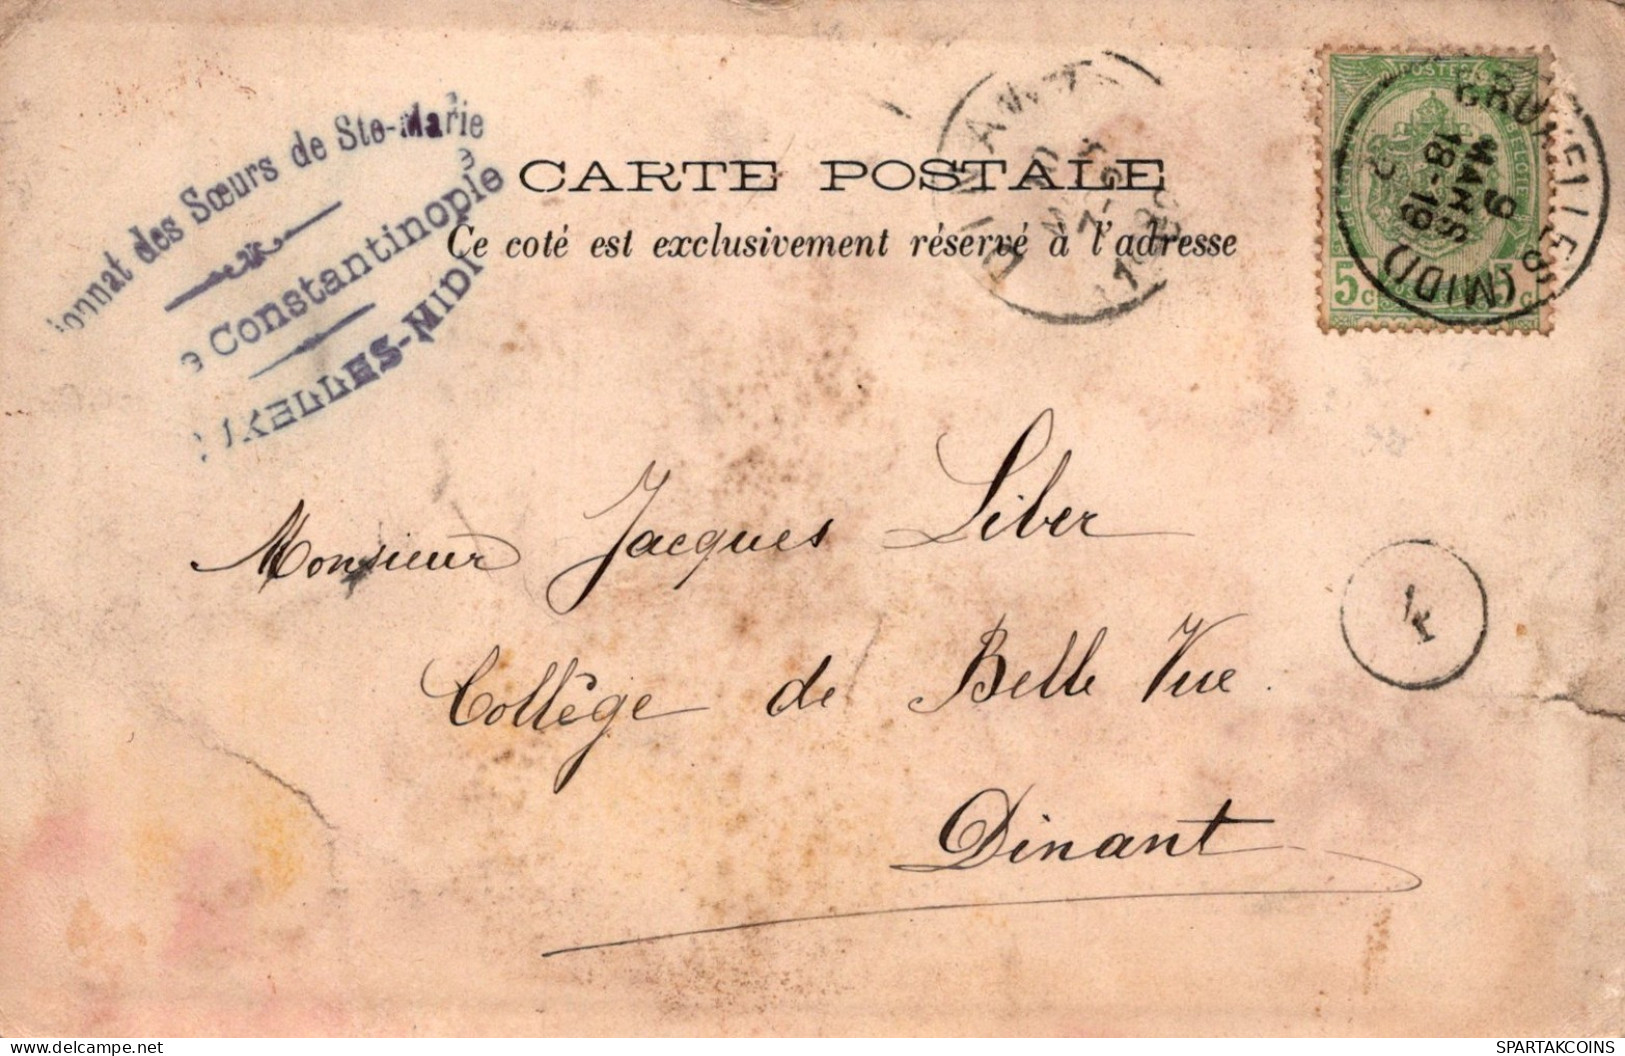 onnat des Sœurs de Ste-Marie
e Constantinople
XELLES-MIDI
CARTE POSTALE
Ce coté est exclusivement réservé à l'adresse
DINANT
POSTE
BELGIQUE
5c
BRUXELLES
(MIDI)
9
MARS
18-19
Monsieur Jacques Liber
Collège de Belle Vue.
Dinant
delcampe.net
SPARTAKCOINS